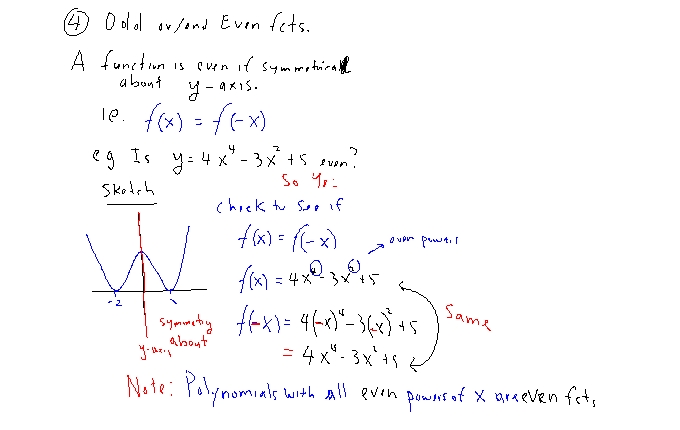 ④ Odd or/and Even fcts.
A function is even if symmetrical
about y-axis.
ie. f(x) = f(-x)
eg Is y = 4x⁴ - 3x² + 5 even?
So Yes
Sketch
check to see if
f(x) = f(-x)
even powers
f(x) = 4x⁴ - 3x² + 5
-2
f(-x) = 4(-x)⁴ - 3(-x)² + 5
Same
symmetry
about
y-axis
= 4x⁴ - 3x² + 5
Note: Polynomials with all even powers of x are even fcts,